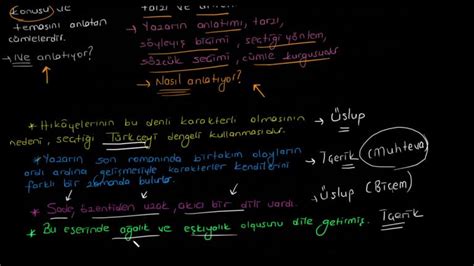 konusu ve
temasını anlatan
cümlelerdir.
→ Ne anlatıyor?
tarzı ve
→ Yazarın anlatımı, tarzı,
söyleyiş biçimi, seçtiği yöntem,
sözcük seçimi, cümle kurgusudur
→ Nasıl anlatıyor?
* Hikâyelerinin bu denli karakterli olmasının → Üslup
nedeni, seçtiği Türkçeyi dengeli kullanmasıdır.
* Yazarın son romanında birtakım olayların → İçerik (Muhteva)
ardı ardına gelişmesiyle karakterler kendilerini
farklı bir zamanda bulurlar.
* Sade, özentiden uzak, akıcı bir dili vardı. → Üslup (Biçem)
* Bu eserinde ağalık ve eşkıyalık olgusunu dile getirmiş. İçerik